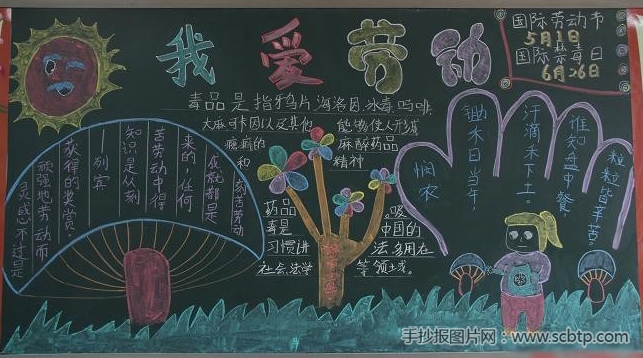 我爱劳动
国际劳动节
5月1日
国际禁毒日
6月26日
毒品是指鸦片海洛因冰毒吗啡
大麻可卡因以及其他 能够使人形成
瘾癖的 麻醉药品
和 精神
药品 。吸
毒是 中国的
习惯讲 法多用在
社会、法学 等领域。
灵感不过是
顽强地劳动而
获得的奖赏。
列宾
知识是从刻
苦劳动中得
来的，任何
成就都是
刻苦劳动
悯农
锄禾日当午，
汗滴禾下土。
谁知盘中餐
粒粒皆辛苦。
手抄报图片网：www.scbtp.com